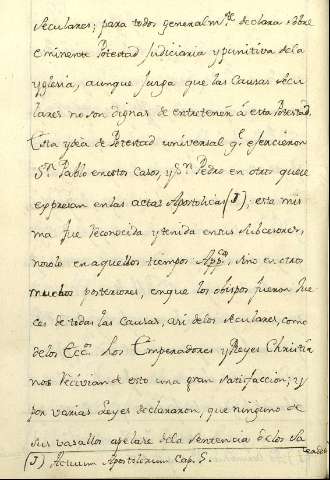 Seculares; para todos generalm.te declara sobre
eminente Potestad Judiciaria y punitiva dela
yglesia, aunque juzga que las Causas secu
lares no son dignas de entretener á esta Potestad.
Esta ydea de Potestad universal q.e exercieron
S.n Pablo en estos Casos, y S.n Pedro en otros que se
expresan en las actas Apostolicas (J); esta mis
ma fue reconocida y tenida en sus subcesores,
no solo en aquellos tiempos App.cos, sino en otros
muchos posteriores, en que los obispos fueron Jue
ces de todas las Causas, asi de los seculares, como
de los Ecc.os Los Emperadores y Reyes Christia
nos recivian de esto una gran satisfaccion; y
por varias Leyes declararon, que ninguno de
sus vasallos apelase dela sentencia de los Sa
cerdo
(J) Actuum Apostolorum Cap. 5.